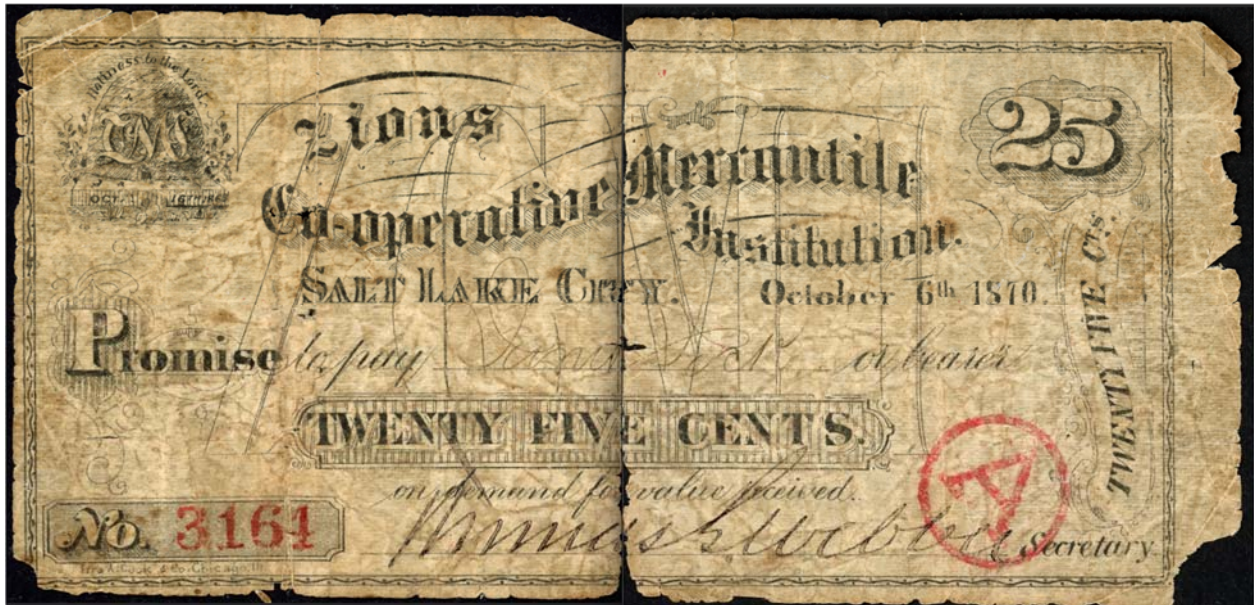 Holiness to the Lord.
Zions
Co-operative Mercantile
Institution.
25
SALT LAKE CITY. October 6th 1870.
Promise to pay or bearer
TWENTY FIVE CENTS.
TWENTY FIVE CTS.
on demand for value received.
A
No. 3164
Thomas G Webber Secretary
& Co. Chicago, Ill.